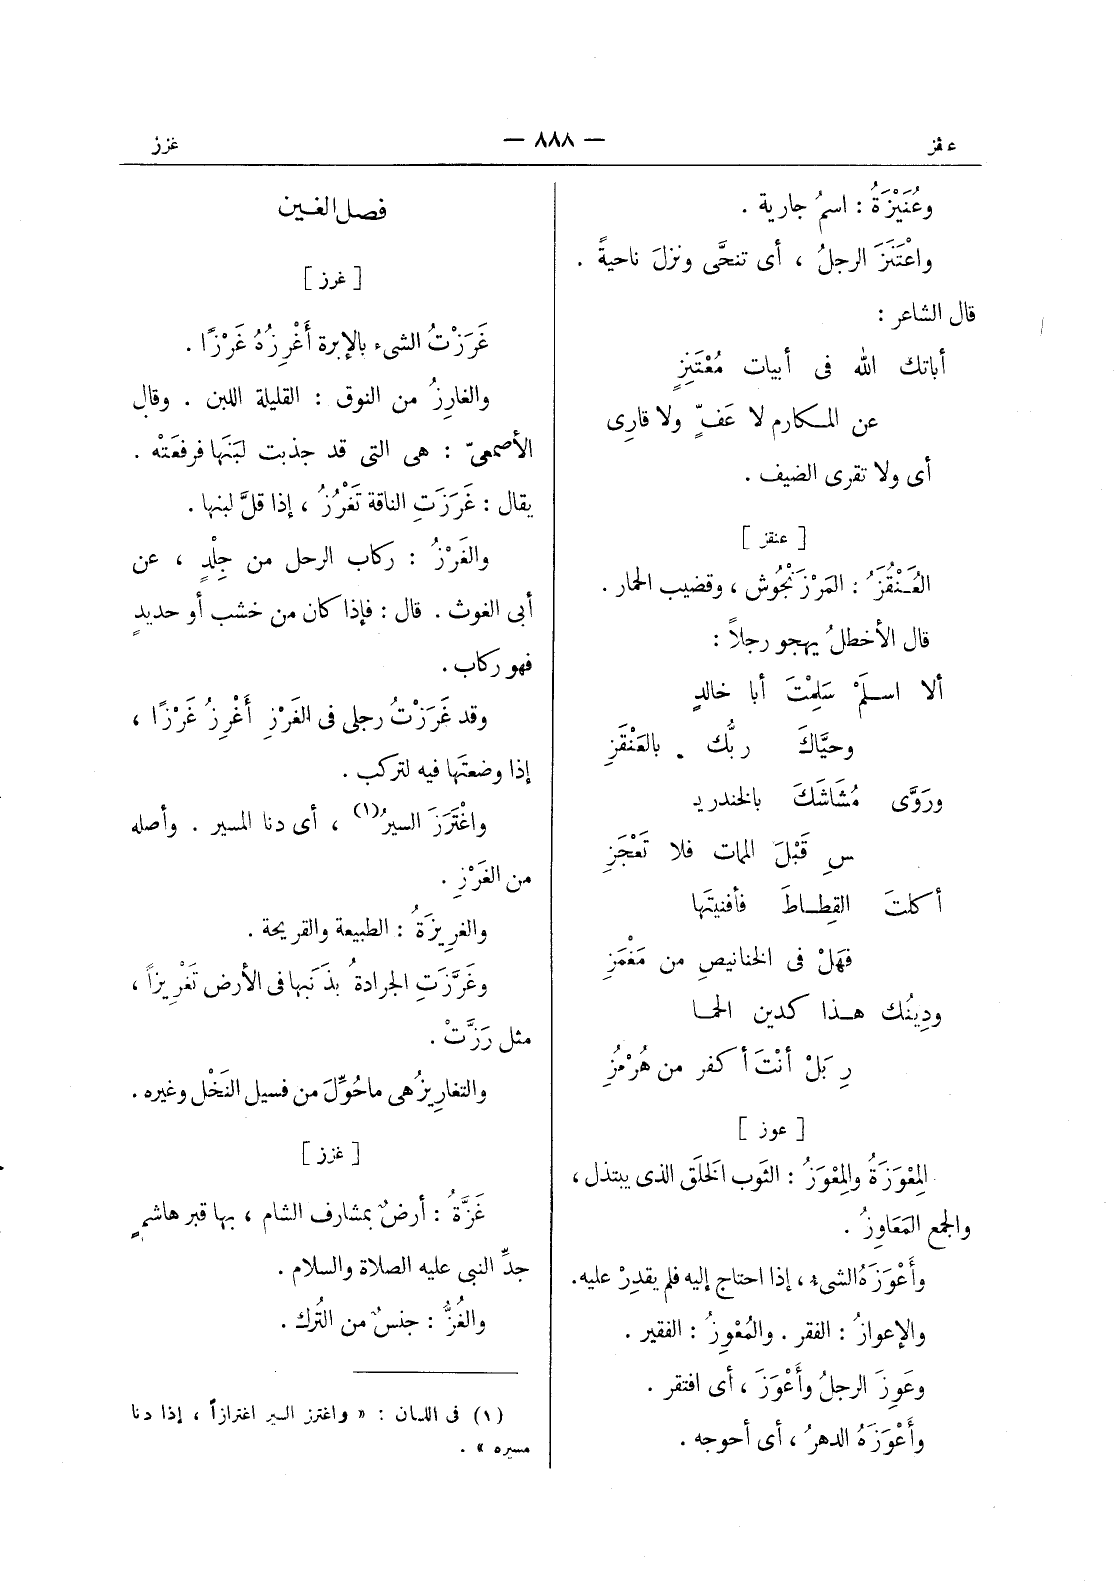 عقز
— ٨٨٨ —
غزز
وعُنَيْزَةُ : اسمُ جارية .
واعْتَنَزَ الرجلُ ، أى تنحَّى ونزلَ ناحيةً .
قال الشاعر :
أباتك الله فى أبيات مُعْتَنِزٍ
عن المكارم لا عَفٍّ ولا قارِى
أى ولا تقرى الضيف .
[ عنقز ]
العَُنْقَُزُ : المَرْزَنْجُوش ، وقضيب الحمار .
قال الأخطلُ يهجو رجلاً :
ألا اسلَمْ سَلِمْتَ أبا خالدٍ
وحيَّاكَ ربُّك بالعَنْقَزِ
ورَوَّى مُشَاشَكَ بالخندريـ
سِ قَبْلَ الممات فلا تَعْجَزِ
أكلتَ القِطاطَ فأفنيتَها
فهَلْ فى الخنانيصِ من مَغْمَزِ
ودِينُك هذا كدين الحما
رِ بَلْ أنْتَ أكفر من هُرْمُزِ
[ عوز ]
المِعْوَزَةُ والمِعْوَزُ : الثوب الخلَق الذى يبتذل ،
والجمع المَعَاوِزُ .
وأَعْوَزَهُ الشىء ، إذا احتاج إليه فلم يقدِرْ عليه .
والإعوازُ : الفقر . والمُعْوِزُ : الفقير .
وعَوِزَ الرجلُ وأَعْوَزَ ، أى افتقر .
وأَعْوَزَهُ الدهرُ ، أى أحوجه .
فصل الغين
[ غرز ]
غَرَزْتُ الشىء بالإبرة أَغْرِزُهُ غَرْزًا .
والغارِزُ من النوق : القليلة اللبن . وقال
الأصمعىّ : هى التى قد جذبت لبَنَها فرفعَتْه .
يقال : غَرَزَتِ الناقة تَغْرُزُ ، إذا قلَّ لبنها .
والغَرْزُ : ركاب الرحل من جِلْدٍ ، عن
أبى الغوث . قال : فإذا كان من خشب أو حديدٍ
فهو ركاب .
وقد غَرَزْتُ رجلى فى الغَرْزِ أَغْرِزُ غَرْزًا ،
إذا وضعتَها فيه لتركب .
واغْتَرَزَ السيرُ(١) ، أى دنا المسير . وأصله
من الغَرْزِ .
والغرِيزَةُ : الطبيعة والقريحة .
وغَرَّزَتِ الجرادةُ بذَنَبها فى الأرض تَغْرِيزاً ،
مثل رَزَّتْ .
والتغاريزُ هى ماحُوِّلَ من فسيل النَخْل وغيره .
[ غزز ]
غَزَّةُ : أرضٌ بمشارف الشام ، بها قبر هاشمٍ
جدِّ النبى عليه الصلاة والسلام .
والغُزُّ : جنسٌ من التُرك .
(١) فى اللسان : « واغترز السير اغترازاً ، إذا دنا
مسيره » .